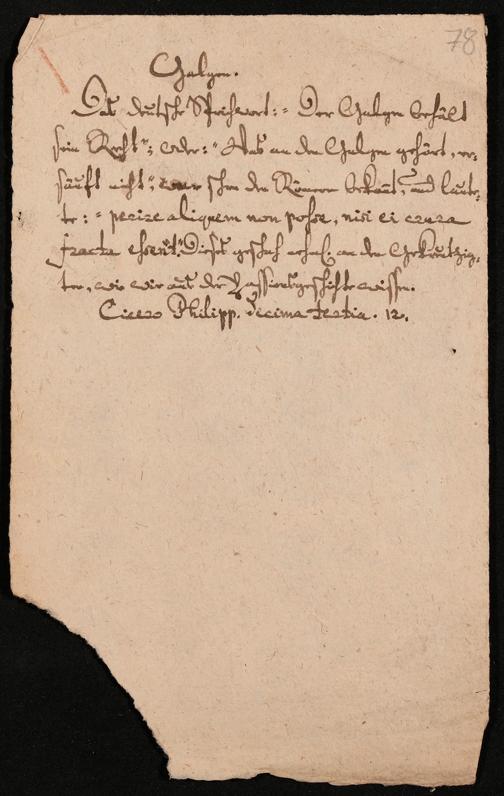 78
Galgen.
Das deutsche Sprichwort: „Der Galgen behält
sein Recht"; oder: "Was an den Galgen gehört, er-
säuft nicht", war schon den Römern bekant, und laute-
te: „ perire aliquem non posse, nisi ei crura
fracta essent." Dieses geschah an den Gekreutzig-
ten, wie wir aus der Passionsgeschichte wissen.
Cicero Philipp. decima tertia. 12.